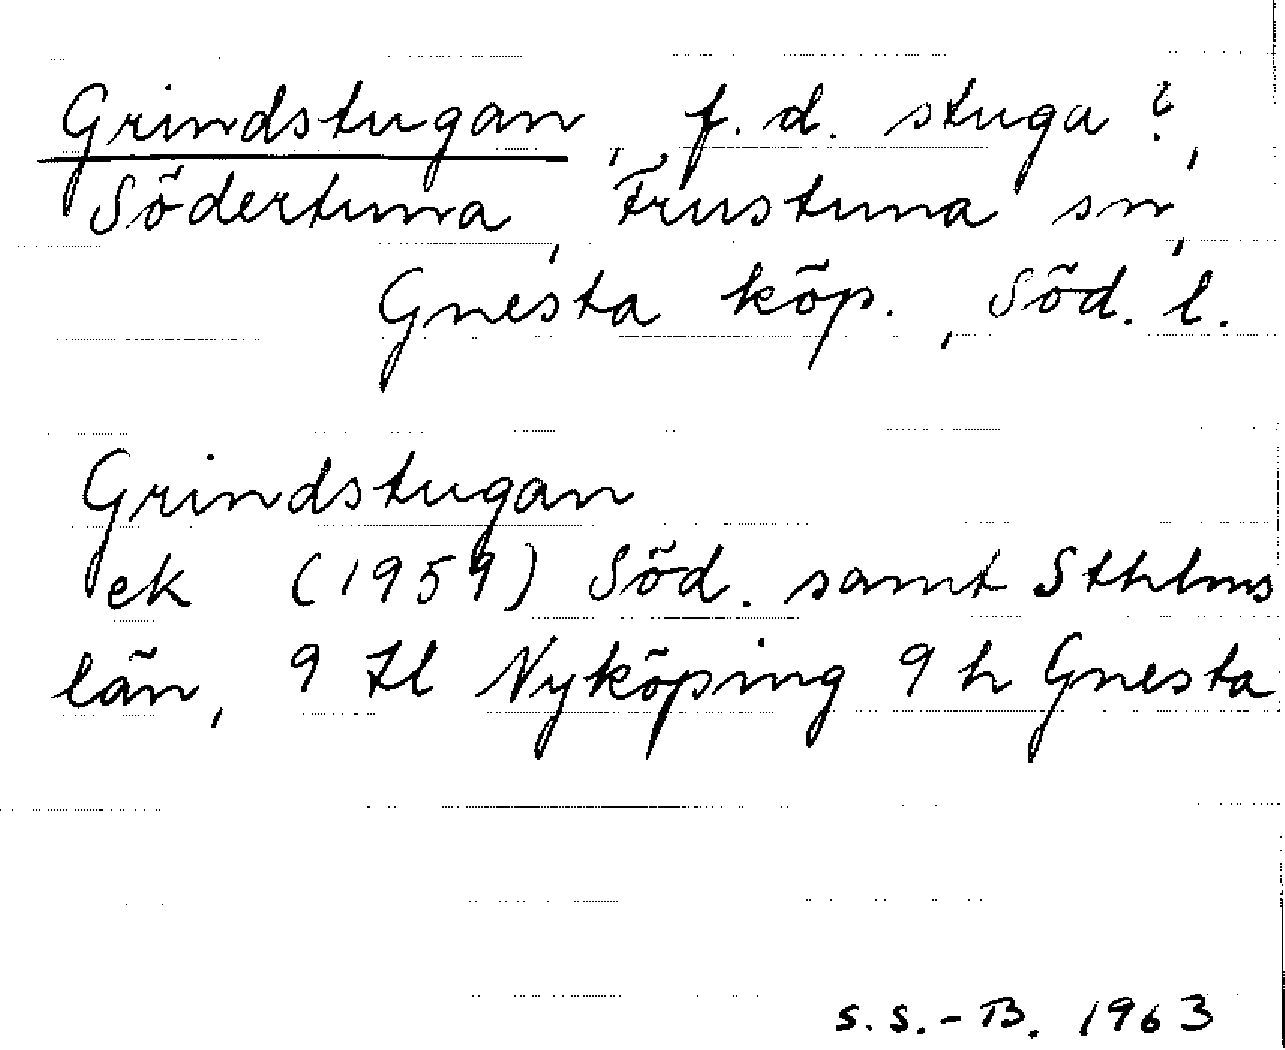 Grindstugan, f.d. stuga?,
Södertuna, Frustuna sn,
Gnesta köp., Söd. l.
Grindstugan
ek (1959) Söd. samt Sthlms
län, 9 Il Nyköping 9 h Gnesta
S.S.-B. 1963